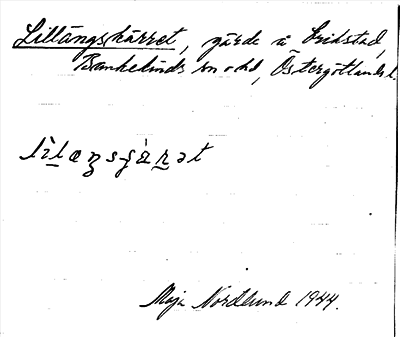 Lillängskärret, gärde i Erikstad,
Bankekinds sn o hd, Östergötlands l.
lìlæŋsɟàrət
Maja Nordlund 1944.